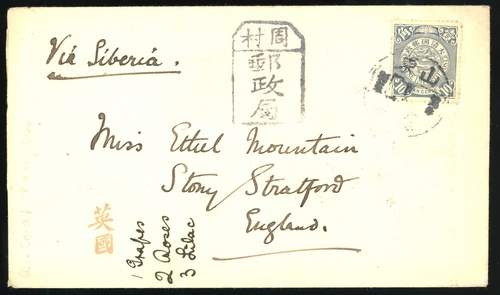 Via Siberia.
周村
郵政局
Miss Ethel Mountain
Stony Stratford
England.
英國
1 Grapes
2 Roses
3 Lilac